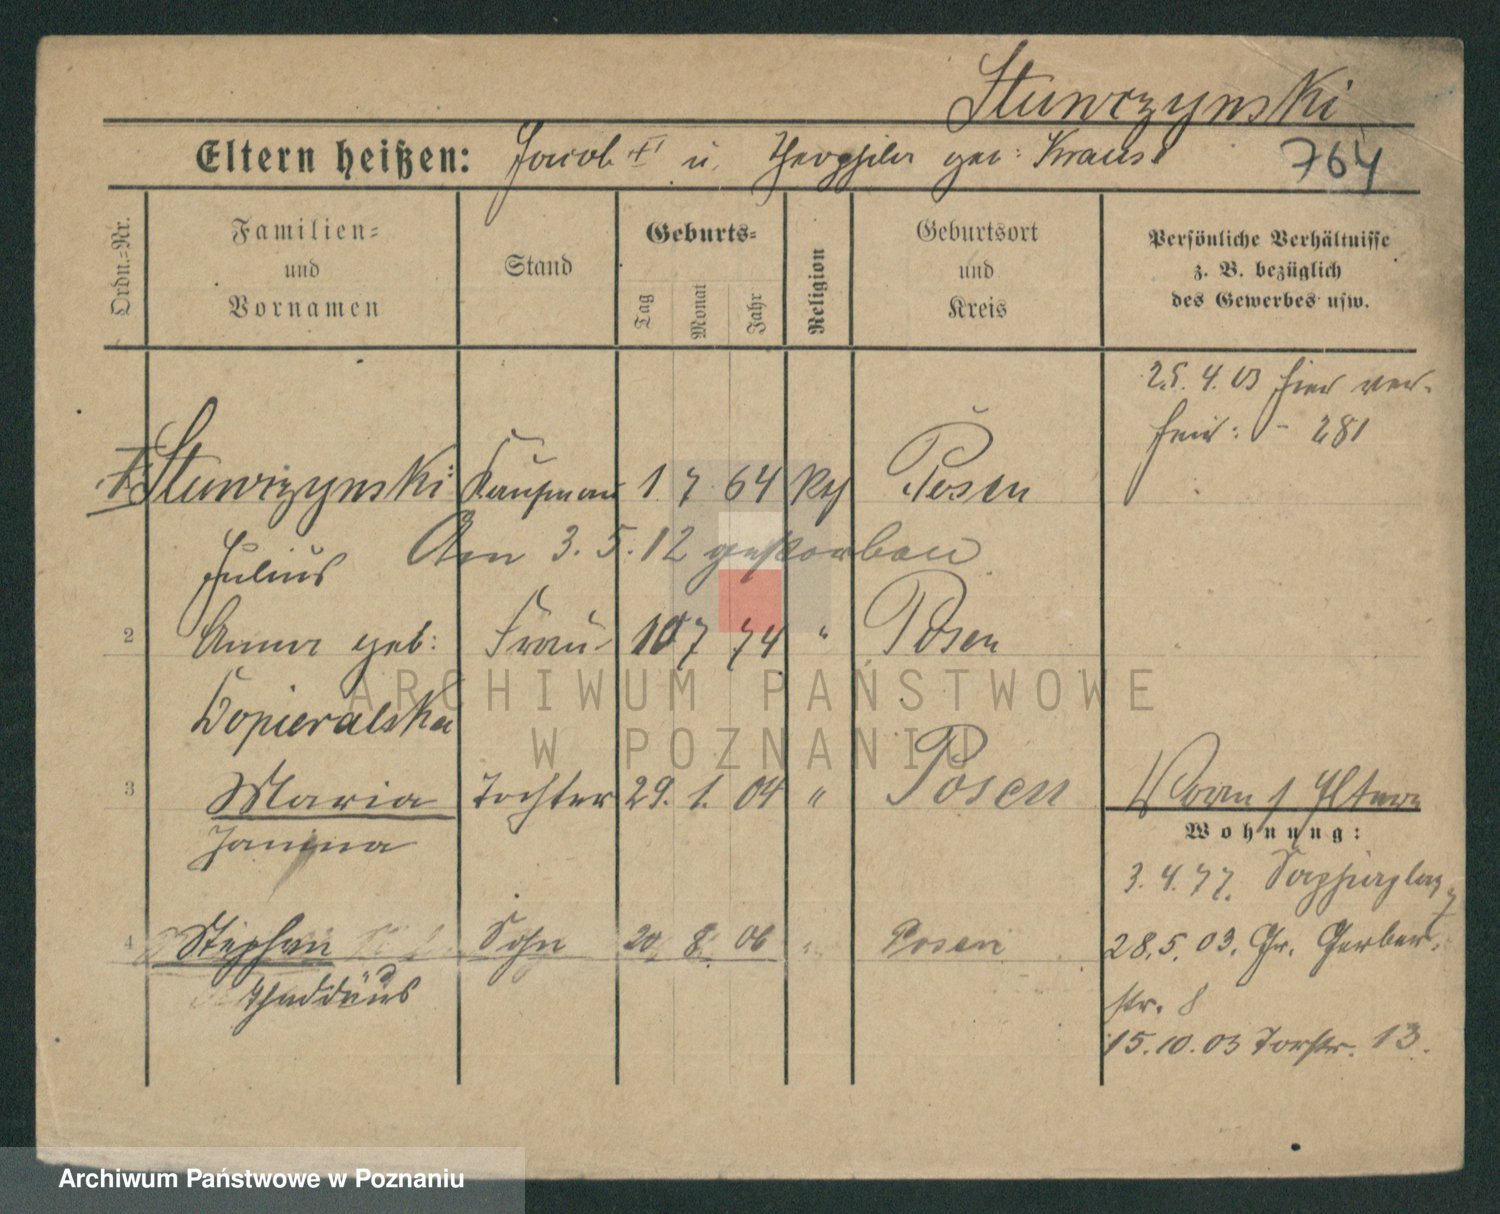 Stuwczynski
Eltern heißen: Jacob † u. Theophila geb: Krause 764
Ordn.-Nr.
Familien- und Vornamen
Stand
Geburts-
Tag Monat Jahr
Religion
Geburtsort und Kreis
Persönliche Verhältnisse
z. B. bezüglich
des Gewerbes usw.
25. 4. 03 hier ver-
heir: - 281
† Stuwczynski: Kaufmann 1 7 64 kth Posen
Julius
Am 3. 5. 12 gestorben
2 Anna geb: Frau 10 7 74 " Posen
Dopieralska
3 Maria Tochter 29. 1. 04 " Posen
Janina
Wohnung:
3. 4. 77. Sapiehaplatz 7
4 Stephan Sohn 20 8 06 " Posen
28. 5. 03. Gr. Gerber-
str. 8
Thaddäus
15. 10. 03 Torstr. 13.
ARCHIWUM PAŃSTWOWE
W POZNANIU
Archiwum Państwowe w Poznaniu